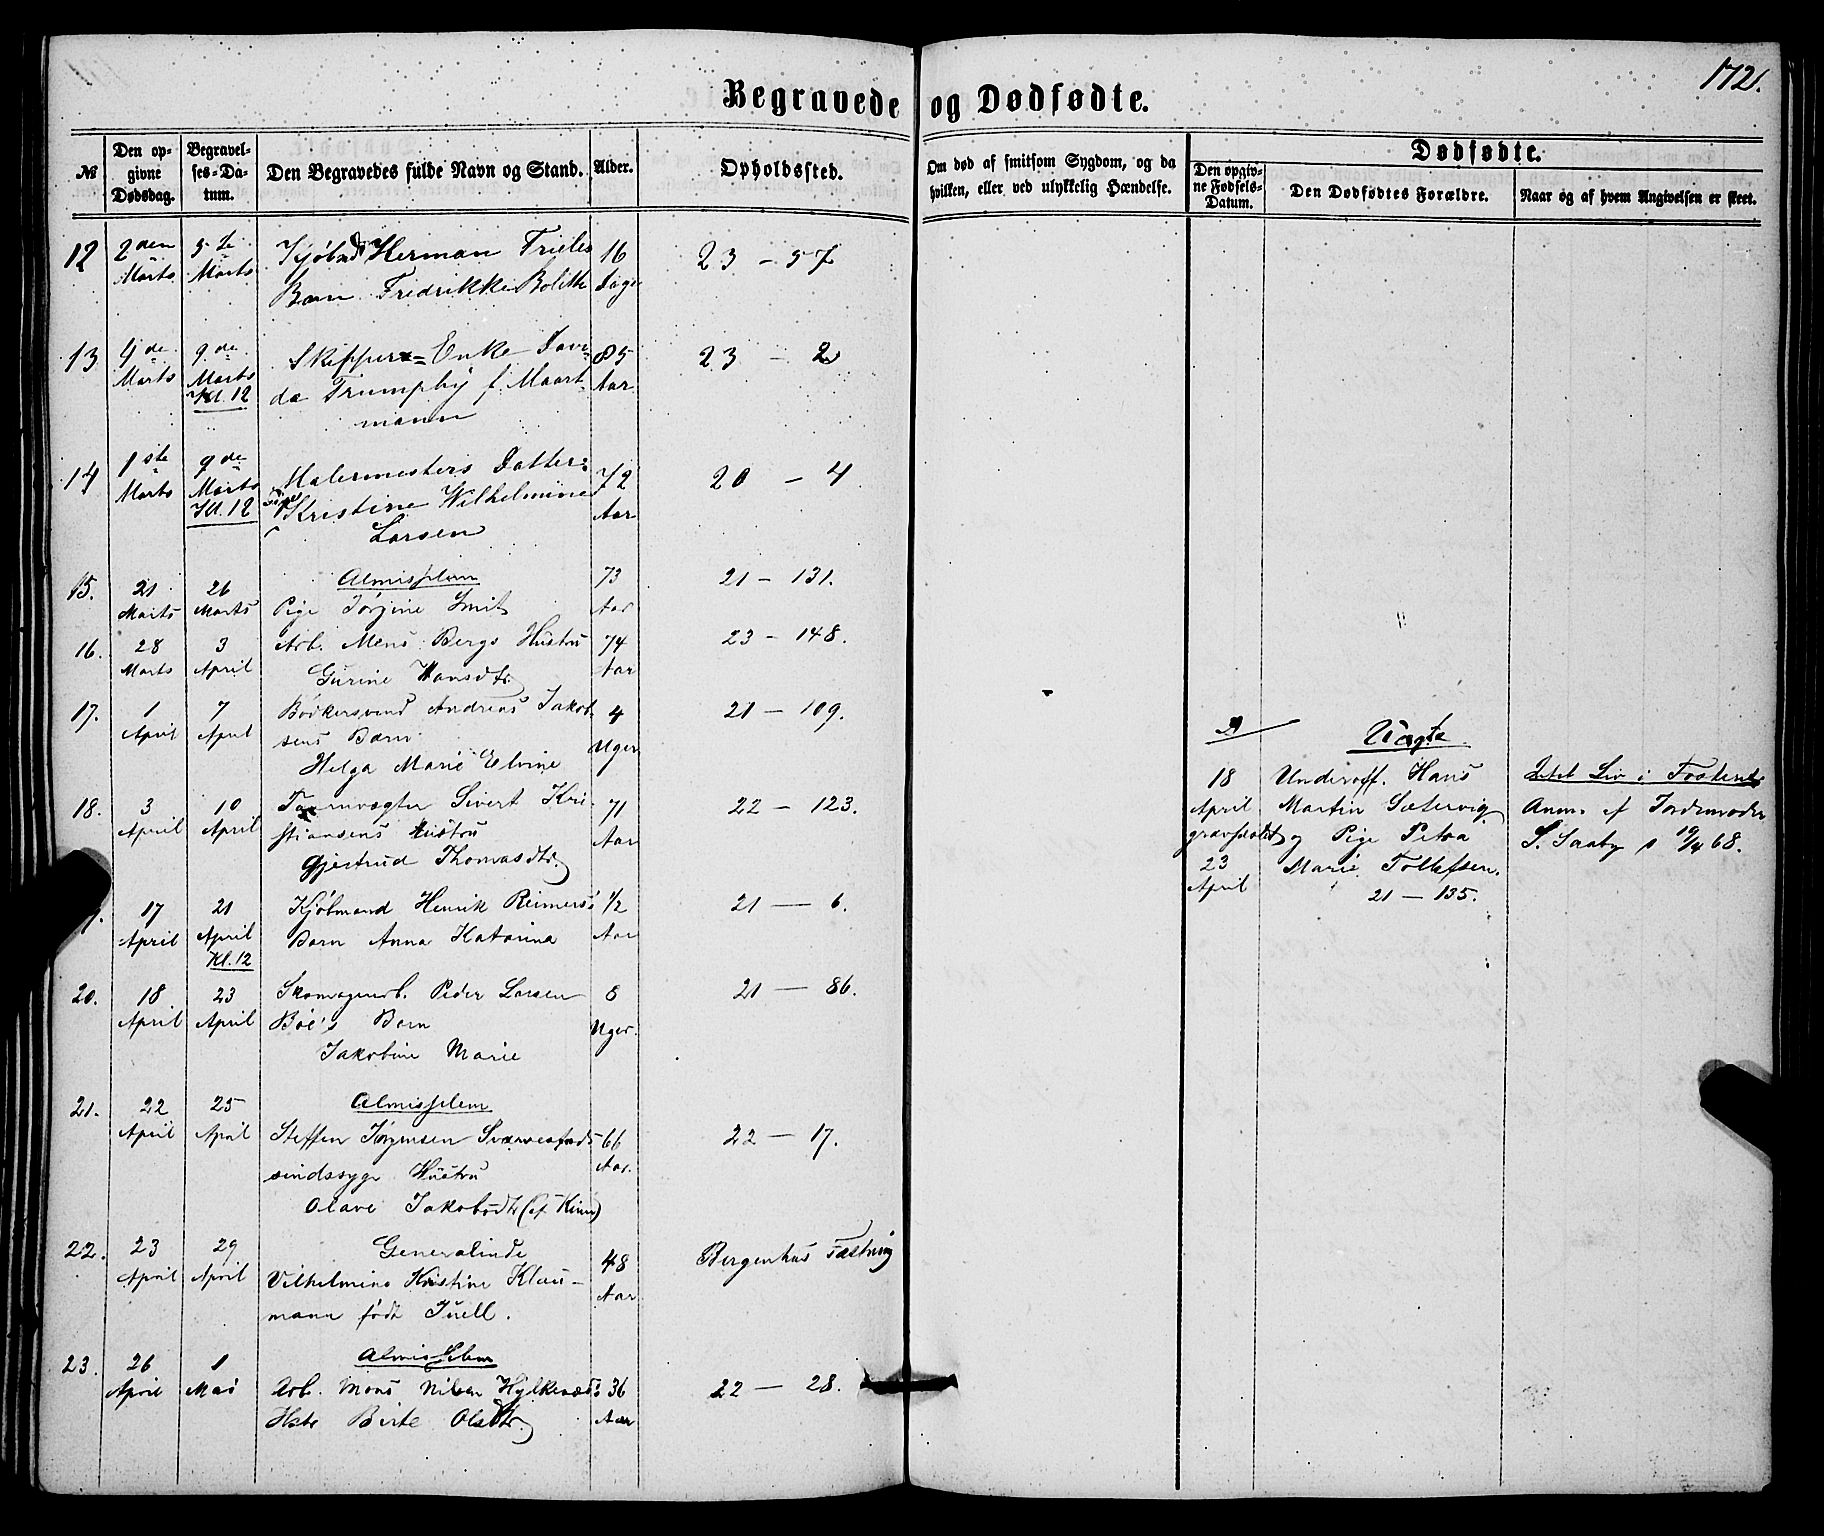 172.
Begravede og Dødfødte.
№
Den op-
givne
Dødsdag.
Begravel-
ses-Da-
tum.
Den Begravedes fulde Navn og Stand.
Alder.
Opholdssted.
Om død af smitsom Sygdom, og da
hvilken, eller ved ulykkelig Hændelse.
Dødfødte.
Den opgiv-
ne Fødsels-
Datum.
Den Dødfødtes Forældre.
Naar og af hvem Angivelsen er skeet.
12 2den Marts 5te Marts Kjøbmd Herman Frieles 16 23 - 57
Barn Fredrikke Bolette Dage
13 4de Marts 9de Marts Kl. 12 Skipper-Enke Davi- 85 23 - 2
da Trumphy f. Maart- Aar
mann
14 1ste Marts 9de Marts Kl. 12 Malermesters Datter 72 20 - 4
Pige Kristine Wilhelmine Aar
Larsen
15. 21 Marts 26 Marts Almisselem 73 21 - 131.
Pige Jørgine Smit Aar
16. 28 Marts 3 April Arb. Mons Bergs Hustru 74 23 - 148.
Gurine Hansdtr. Aar
17. 1 April 7 April Bødkersvend Andreas Jakob- 4 21 - 109.
sens Barn Uger
Helga Marie Elvine
18. 3 April 10 April Taarnvægter Sivert Kri- 71 22 - 123.
stiansens Hustru Aar
Gjertrud Thomasdtr.
17 April 21 April Kl. 12 Kjøbmand Henrik Reimers's 1/2 21 - 6.
Barn Anna Katarina Aar
20. 18 April 23 April Skomagerarb. Peder Larsen 8 21 - 86.
Böe's Barn Uger.
Jakobine Marie
21. 22 April 25 April Almisselem
Steffen Jørgensen 66 22 - 17.
sindssyge Hustru Aar.
Olave Jakobsdtr (af Kinn)
22. 23 April 29 April Generalinde 48 Bergenhus Fæstning
Vilhelmine Kristine Klau- Aar
mann født Juell.
23. 26 April 1 Mai Almisselem
Arb. Mons Nilsen 36 22 - 28.
Hstr Birte Olsdtr. Aar
Uægte
18 Underoff. Hans
April Martin Sætervig
gravfæstet og Pige Petra
23 Marie Tollefsen.
April 21 - 135.
Intet Liv i Fosteret
Anm. af Jordemoder
S. Saaby d 19/4 68.